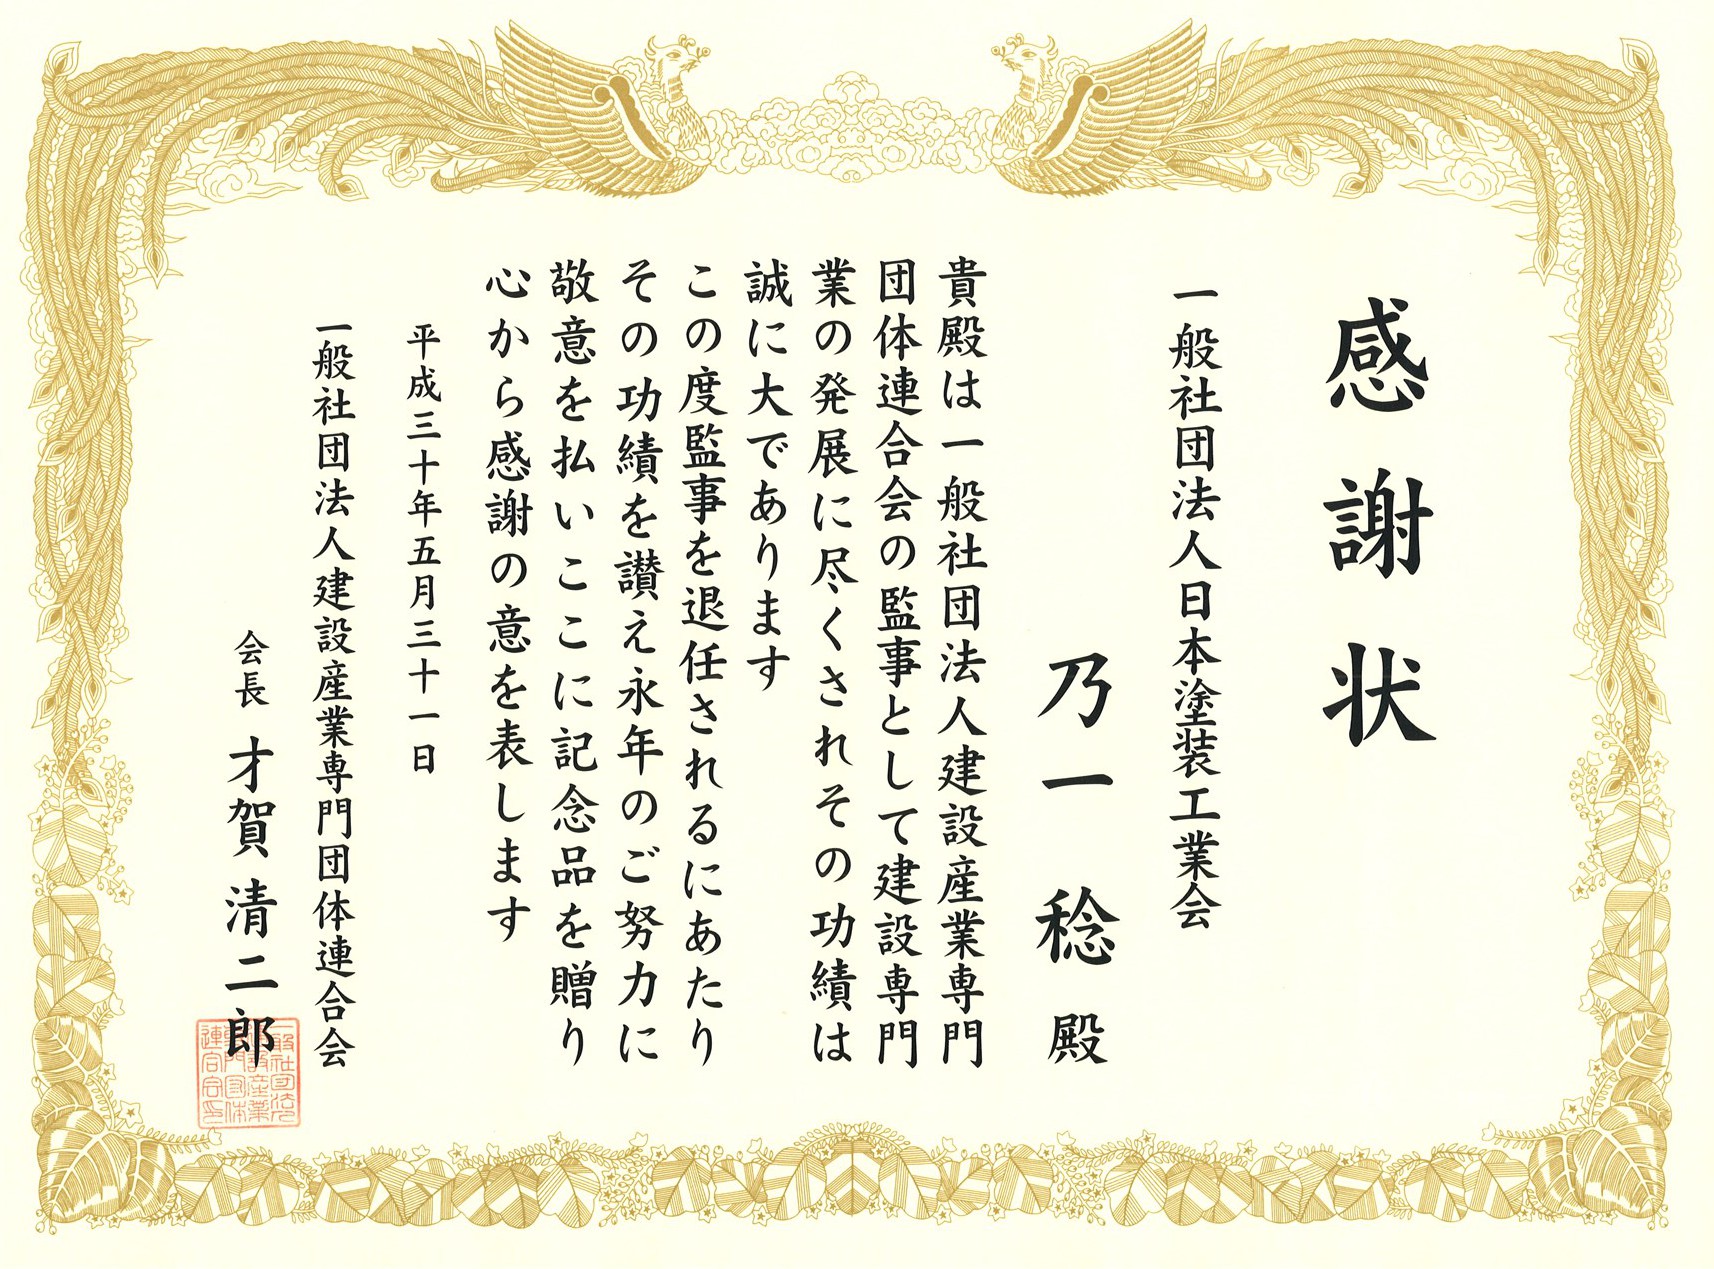 感謝状
一般社団法人日本塗装工業会
乃一 稔 殿
貴殿は一般社団法人建設産業専門
団体連合会の監事として建設専門
業の発展に尽くされその功績は
誠に大であります
この度監事を退任されるにあたり
その功績を讃え永年のご努力に
敬意を払いここに記念品を贈り
心から感謝の意を表します
平成三十年五月三十一日
一般社団法人建設産業専門団体連合会
会長 才賀 清二郎
一般社団法人
建設産業
専門団体
連合会印